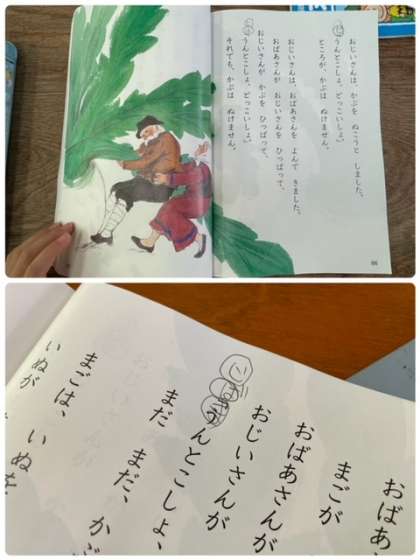 おじいさんは、かぶを ぬこうと しました。
うんとこしょ、どっこいしょ。」
ところが、かぶは ぬけません。
おじいさんは、おばあさんを よんで きました。
おばあさんが おじいさんを ひっぱって、
おじいさんが かぶを ひっぱって、
うんとこしょ、どっこいしょ。」
それでも、かぶは ぬけません。
おばあ
まごが
おばあさんが
おじいさんが
うんとこしょ、
まだ まだ、か
まごは、
いぬが いぬを